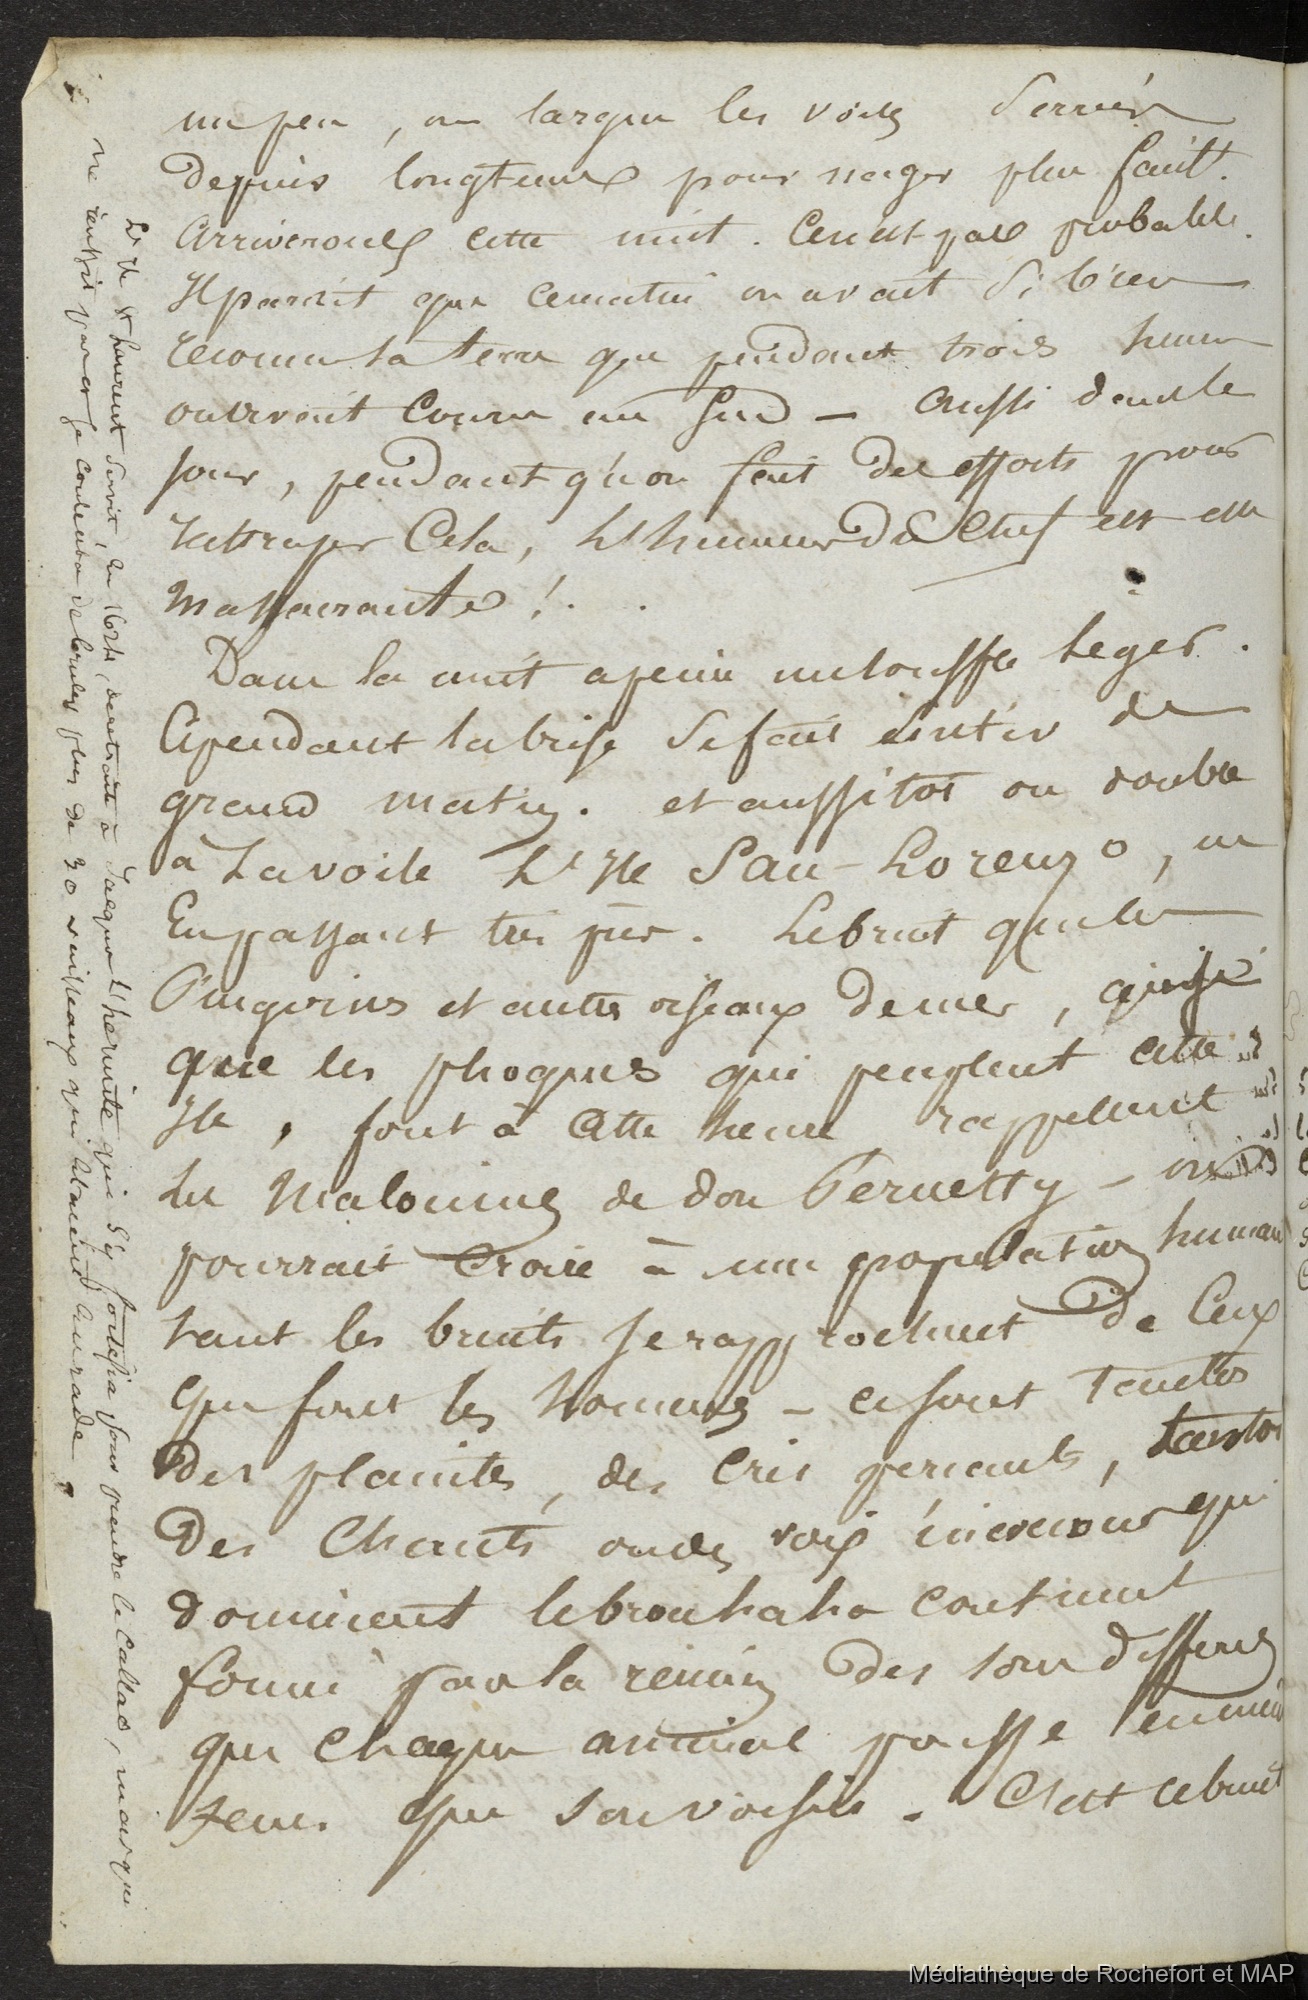 un peu, on largue les voiles serrées
depuis longtems pour nager plus facilt.
Arriverons cette nuit. Ce n'est pas probable.
Il parait que ce matin on avait si bien
reconnu la terre que pendant trois heures
on avait couru au Sud – aussi dans le
jour, pendant qu'on fait des efforts pour
rattraper cela, l'humeur du Chef est elle
massacrante !. .
Dans la nuit a peine un souffle leger.
Cependant la brise se fait sentir de
grand matin. et aussitot on double
à la voile L'Ile San-Lorenzo, en
en passant très près. Le bruit que les
Pingoins et autres oiseaux de mer, ainsi
que les phoques qui peuplent cette
Ile, font à cette heure rappellent
les Malouines de don Pernetty – on
pourrait croire à une population humaine
tant les bruits se rapprochent de Ceux
que font les hommes – ce sont tantôt
des plaintes, des Cris percants, tantot
Des Chants ou des voix qui
dominent le brouhaha continuel
formé par la réunion des sons differens
que chaque animal pousse en même
tems que son voisin – C'est ce bruit
L'Ile St Laurent servit, en 1624, de retraite à Jacques L'hermite qui s'y fortifia pour prendre le Callao, mais qui
ne réussit pas et se contenta de bruler plus de 30 vaisseaux qui étaient en rade.
Médiathèque de Rochefort et MAP